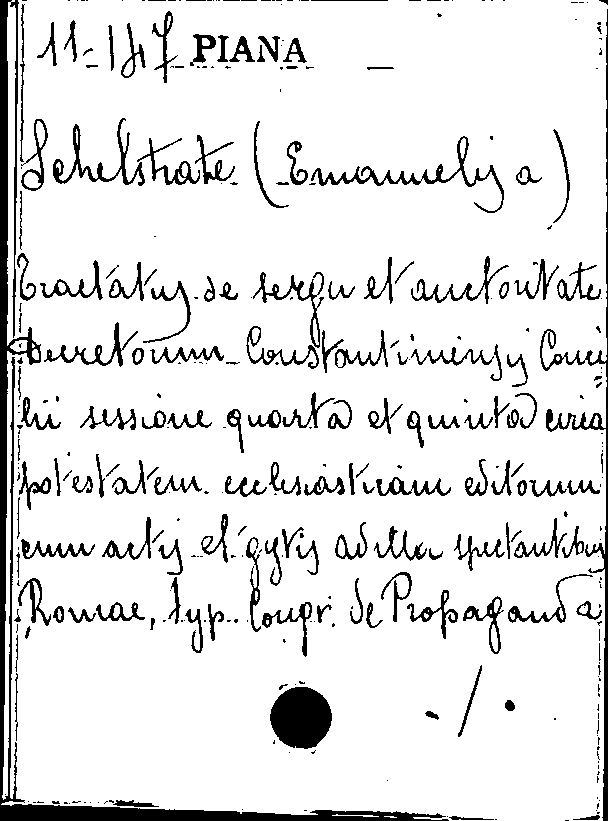 11-147 PIANA
Schelstrate (Emanuelis a)
Tractatus de sergu et auctoritate
Decretorum Constantiniensis Conci=
lii sessione quarta et quinta circa
potestatem ecclesiasticam editorum
cum actis et gytis ad illa spectantibus
Romae, Typ. Congr. de Propaganda
-/.